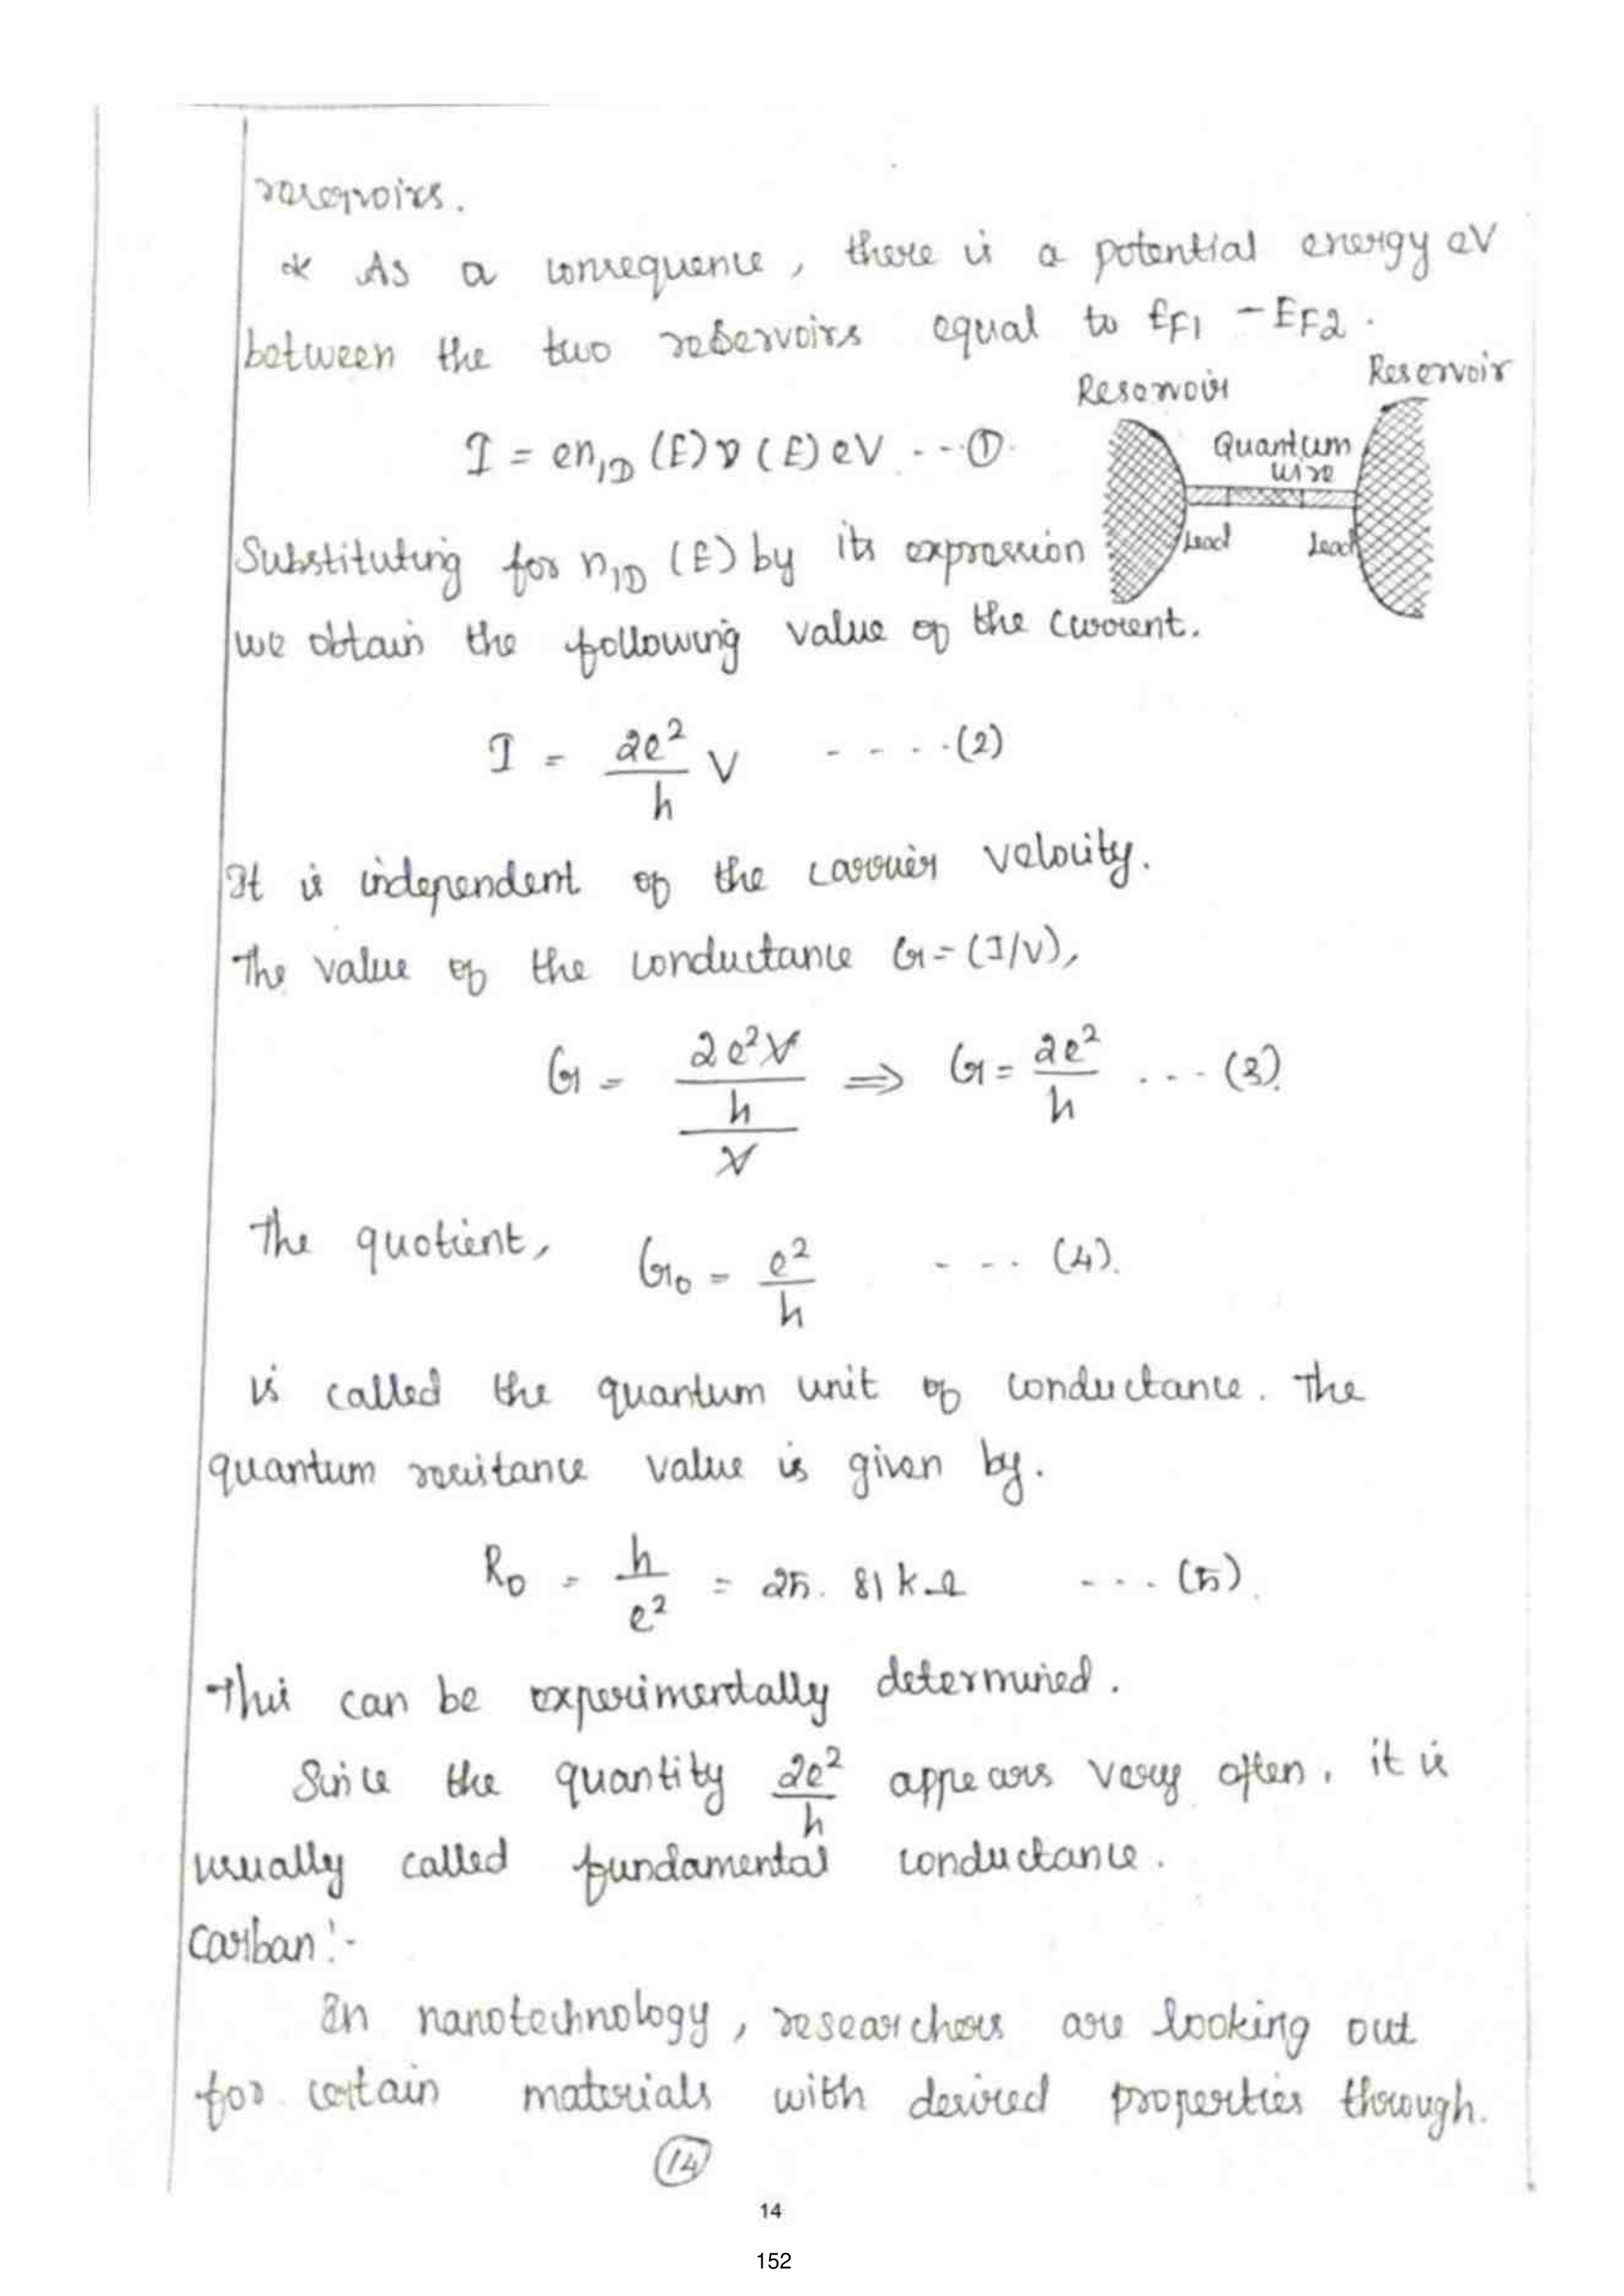 reservoirs.
* As a consequence, there is a potential energy eV
between the two reservoirs equal to EF1 - EF2.
Reservoir
Reservoir
I = en1D (E) v (E) eV ... ①
Quantum
wire
Lead
Lead
Substituting for n1D (E) by its expression
we obtain the following value of the current.
I = 2e²/h V - - - - (2)
It is independent of the carrier velocity.
The value of the conductance G = (I/V),
G = 2e²V/h/V ⇒ G = 2e²/h ... (3).
The quotient, G0 = e²/h - - - (4).
is called the quantum unit of conductance. The
quantum resistance value is given by.
R0 = h/e² = 25.81 kΩ - - - (5).
This can be experimentally determined.
Since the quantity 2e²/h appears very often, it is
usually called fundamental conductance.
Carban:-
In nanotechnology, researchers are looking out
for certain materials with desired properties through.
14
14
152